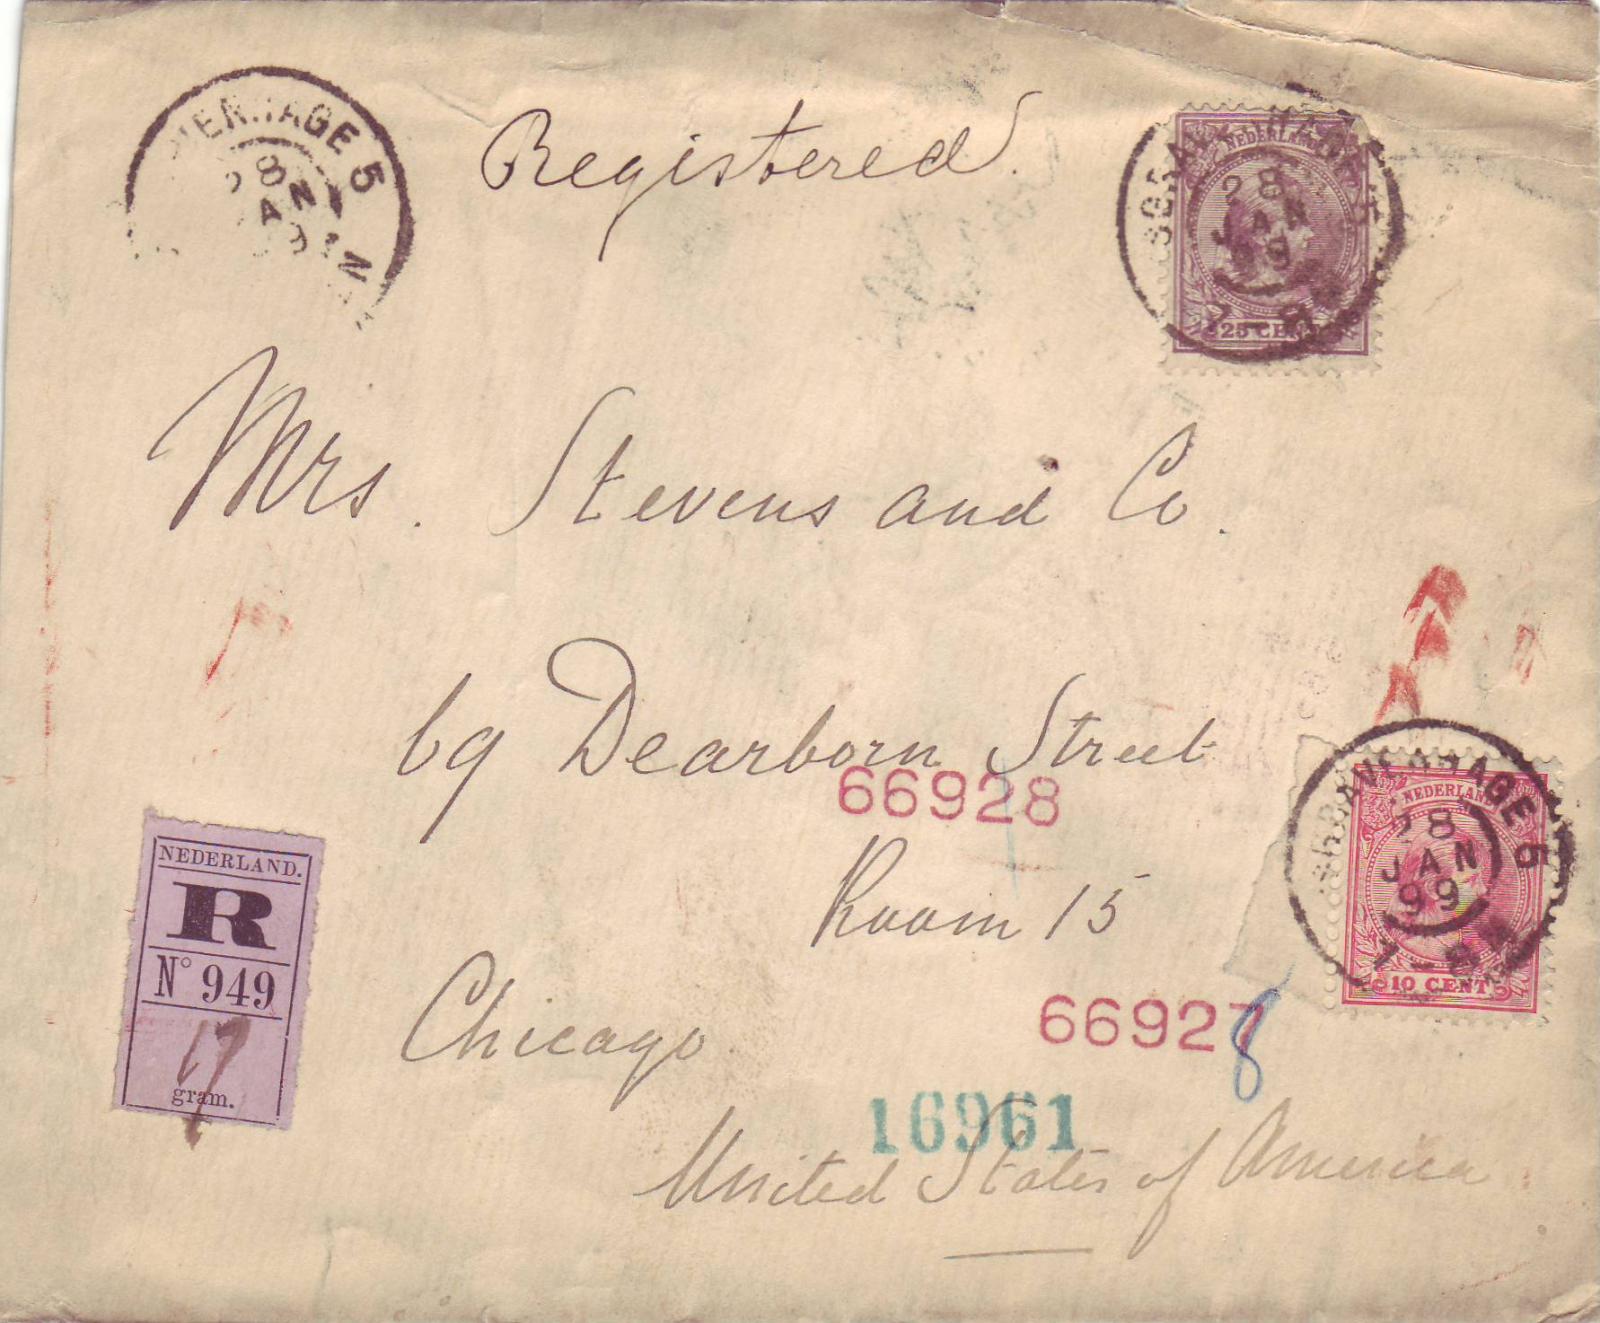 Registered.
NEDERLAND
25 CENT
'SGRAVENHAGE 5
28
JAN
99
7-8N
Mrs. Stevens and Co.
69 Dearborn Street
66928
Room 15
Chicago
66927
8
16961
United States of America
NEDERLAND.
R
N° 949
17
gram.
NEDERLAND
10 CENT
'SGRAVENHAGE 5
28
JAN
99
7-8N